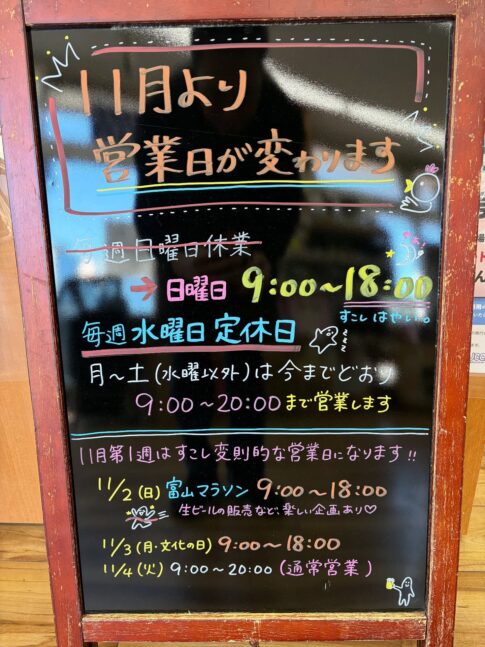 11月より
営業日が変わります
毎週日曜日休業
→ 日曜日 9:00〜18:00
すこしはやい。
毎週水曜日定休日
月〜土(水曜以外)は今までどおり
9:00〜20:00まで営業します
11月第1週はすこし変則的な営業日になります!!
11/2(日)富山マラソン 9:00〜18:00
生ビールの販売など、楽しい企画あり♡
11/3(月・文化の日)9:00〜18:00
11/4(火)9:00〜20:00(通常営業)